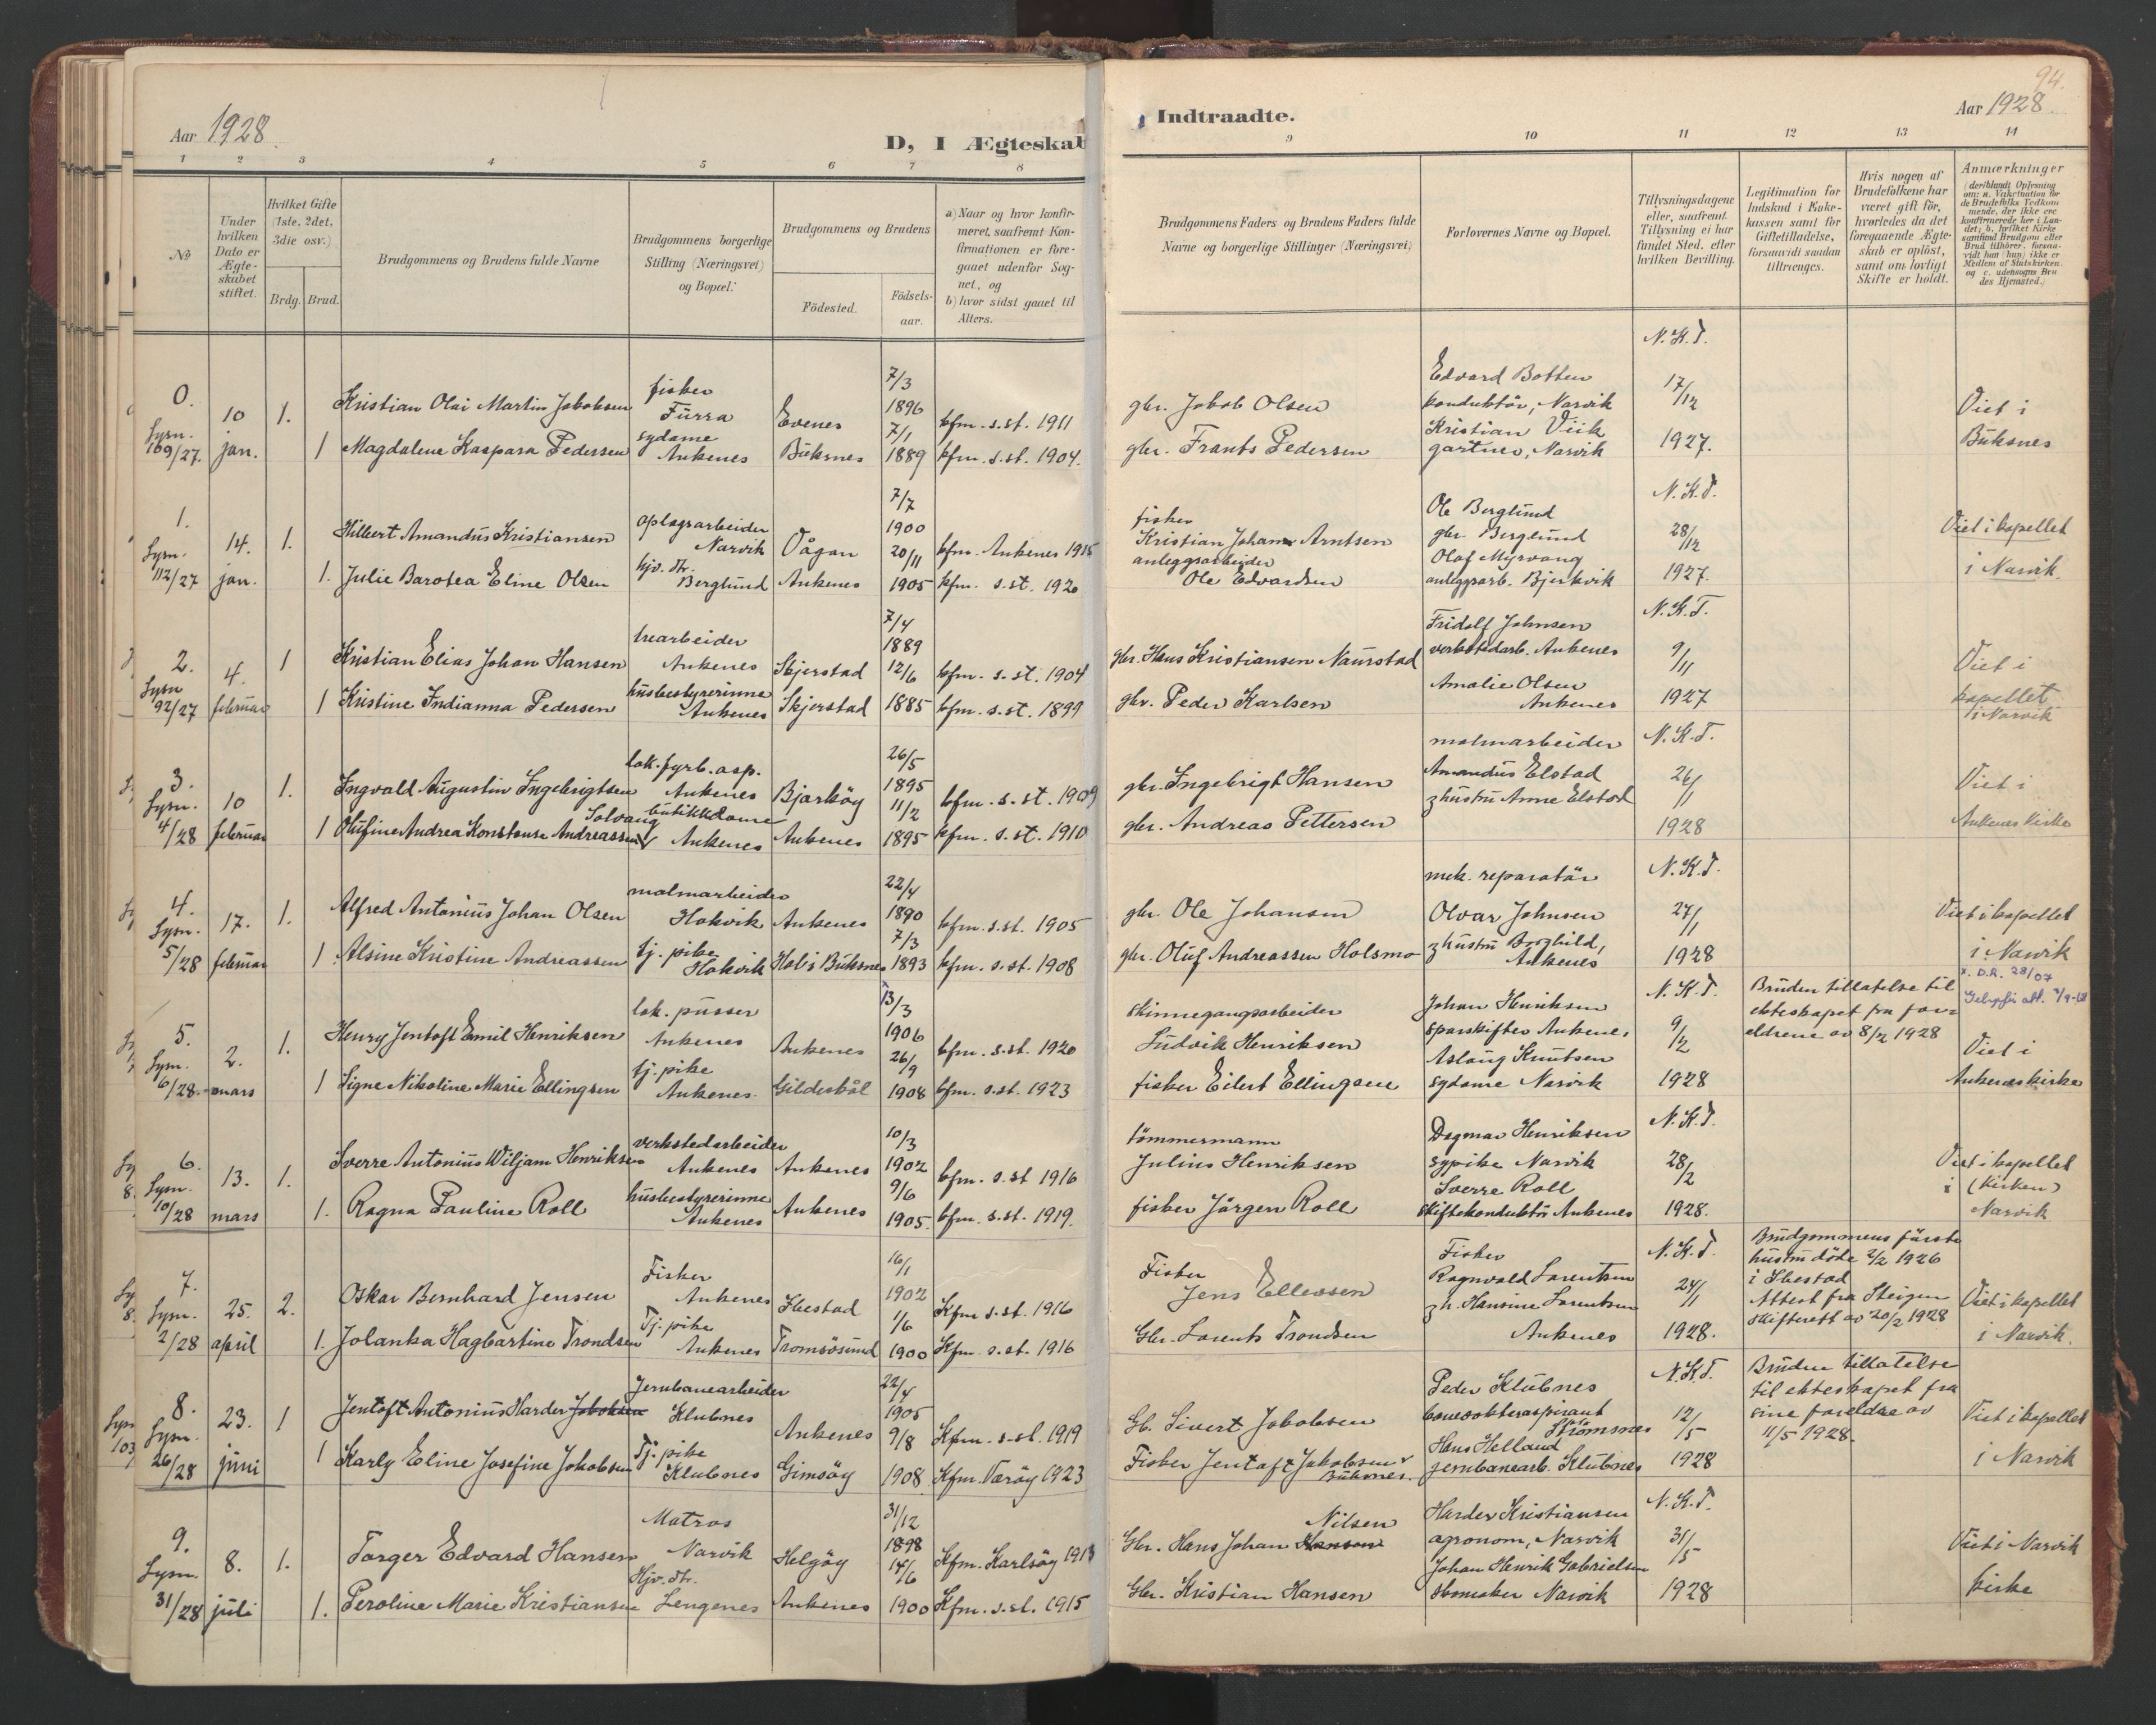 94.
Aar 1928
D, I Ægteskab
Indtraadte.
Aar 1928
1 2 3 4 5 6 7 8
9 10 11 12 13 14
No
Under hvilken Dato er Ægteskabet stiftet.
Hvilket Gifte (1ste, 2det, 3die osv.)
Brdg. Brud.
Brudgommens og Brudens fulde Navne
Brudgommens borgerlige Stilling (Næringsvei) og Bopæl.
Brudgommens og Brudens
Födested.
Födselsaar.
a) Naar og hvor konfirmeret, saafremt Konfirmationen er foregaaet udenfor Sognet, og
b) hvor sidst gaaet til Alters.
Brudgommens Faders og Brudens Faders fulde Navne og borgerlige Stillinger (Næringsvei)
Forlovernes Navne og Bopæl.
Tillysningsdagene eller, saafremt Tillysning ei har fundet Sted, efter hvilken Bevilling.
Legitimation for Indskud i Enkekassen samt for Giftetilladelse, forsaavidt saadan tiltrænges.
Hvis nogen af Brudefolkene har været gift för, hvorledes da det foregaaende Ægteskab er oplöst, samt om lovligt Skifte er holdt.
Anmærkninger
(deriblandt Oplysning om: a. Vakcination for de Brudefolks Vedkommende, der ikke ere konfirmerede her i Landet; b. hvilket Kirkesamfund Brudgom eller Brud tilhörer, forsaavidt han (hun) ikke er Medlem af Statskirken, og c. udensogns Brudes Hjemsted.)
0. Lysn. 109/27. 10 jan. 1. Kristian Olai Martin Jakobsen fisker Furra Evenes 7/3 1896 kfm. s. st. 1911 gbr. Jakob Olsen Edvard Botten konduktör, Narvik N.K.T. 17/12 1927. Viet i Buksnes
1 Magdalene Kaspara Pedersen sydame Ankenes Buksnes 7/1 1889 kfm. s. st. 1904. gbr. Frants Pedersen Kristian Viik gartner, Narvik
1. Lysn. 112/27 14. jan. 1. Hilbert Amandus Kristiansen oplagsarbeider Narvik Vågan 7/7 1900 kfm. Ankenes 1915 fisker Kristian Johan Arntsen Ole Berglund gbr. Berglund N.K.T. 28/12 1927. Viet i kapellet i Narvik.
1. Julie Barotea Eline Olsen hjv. dtr. Berglund Ankenes 20/11 1905 kfm. s. st. 1920 anleggsarbeider Ole Edvardsen Olaf Myrvang anleggsarb. Bjerkvik
2. Lysn 92/27 4. februar 1 Kristian Elias Johan Hansen trearbeider Ankenes Skjerstad 7/4 1889 kfm. s. st. 1904 gbr. Hans Kristiansen Naurstad Fridolf Johnsen verkstedarb. Ankenes N.K.T. 9/11 1927 Viet i kapellet i Narvik
1 Kristine Indianna Pedersen husbestyrerinne Ankenes Skjerstad 12/6 1885 kfm. s. st. 1899 gbr. Peder Karlsen Amalie Olsen Ankenes
3. Lysn. 4/28 10 februar 1. Ingvald Augustin Ingebrigtsen lok. fyrb. asp. Ankenes Bjarköy 26/5 1895 kfm. s. st. 1909 gbr. Ingebrigt Hansen malmarbeider Amandus Elstad N.K.T. 26/1 1928 Viet i Ankenes kirke
1 Olufine Andrea Konstanse Andreassen Solvang butikkdame Ankenes Ankenes 11/2 1895 kfm. s. st. 1910 gbr. Andreas Pettersen & hustru Anne Elstad
4. Lysn. 5/28 17. februar 1. Alfred Antonius Johan Olsen malmarbeider Hakvik Ankenes 22/4 1890 kfm. s. st. 1905 gbr. Ole Johansen mek. reparatör Olvar Johnsen N.K.T. 27/1 1928 Viet i kapellet i Narvik
1. Alsine Kristine Andreassen tj. pike Hakvik Hol i Buksnes 7/3 1893 kfm. s. st. 1908 gbr. Oluf Andreassen Holsmo & hustru Borghild, Ankenes
5. Lysn. 6/28 2. mars 1. Henry Jentoft Emil Henriksen lok. pusser Ankenes Ankenes 13/3 1906 kfm. s. st. 1920 skinnegangsarbeider Ludvik Henriksen Johan Henriksen sporskifter Ankenes N.K.T. 9/2 1928 Bruden tillatelse til ekteskapet fra foreldrene av 8/2 1928 Viet i Ankenes kirke
1 Signe Nikoline Marie Ellingsen tj. pike Ankenes. Gildeskål 26/9 1908 kfm. s. st. 1923 fisker Eilert Ellingsen Aslaug Knutsen sydame Narvik
6. Lysn. 10/28 13. mars 1. Sverre Antonius Wiljam Henriksen verkstedarbeider Ankenes Ankenes 10/3 1902 kfm. s. st 1916 tömmermann Julius Henriksen Dagmar Henriksen sypike Narvik N.K.T. 28/2 1928. Viet i kapellet i (kirken) Narvik
1. Ragna Pauline Roll husbestyrerinne Ankenes Ankenes 9/6 1905. kfm. s. st. 1919. fisker Jörgen Roll Sverre Roll skiftekonduktör Ankenes
7. Lysn. 2/28 25. april 2. Oskar Bernhard Jensen Fisker Ankenes Ibestad 16/1 1902 Kfm s. st. 1916 Fisker Jens Ellevsen Fisker Ragnvald Larentsen N.K.T. 24/1 1928. Brudgommens förste hustru döde 2/2 1926 i Ibestad Attest fra Steigen skifterett av 20/2 1928 Viet i kapellet i Narvik.
1. Jolanka Hagbartine Trondsen Tj. pike Ankenes Tromsösund 1/6 1900 Kfm. s. st. 1916 Gbr. Larents Trondsen & h. Hansine Larentsen Ankenes
8. Lysn. 26/28 23. juni 1 Jentoft Antonius Harder Jakobsen Jernbanearbeider Klubnes Ankenes 22/4 1905 Kfm. s. st. 1919 Gb. Sivert Jakobsen Peder Klubnes banevokteraspirant Strömsnes N.K.T. 12/5 1928 Bruden tillatelse til ekteskapet fra sine foreldre av 11/5 1928. Viet i kapellet i Narvik
1 Karly Eline Josefine Jakobsen Tj. pike Klubnes Gimsöy 9/8 1908 Kfm. Væröy 1923 Fisker Jentoft Jakobsen Buksnes. Hans Helland jernbanearb. Klubnes
9. Lysn. 31/28 8. juli 1. Torger Edvard Hansen Matros Narvik Helgöy 31/12 1898 Kfm. Karlsöy 1913 Gbr. Hans Johan Hansen Nilsen Harder Kristiansen agronom, Narvik N.K.T. 31/5 1928 Viet i Narvik kirke
1. Peroline Marie Kristiansen Hjv. dtr. Lengenes Ankenes 14/6 1900 Kfm. s. st. 1915 Gbr. Kristian Hansen Johan Henrik Gabrielsen skomaker Narvik